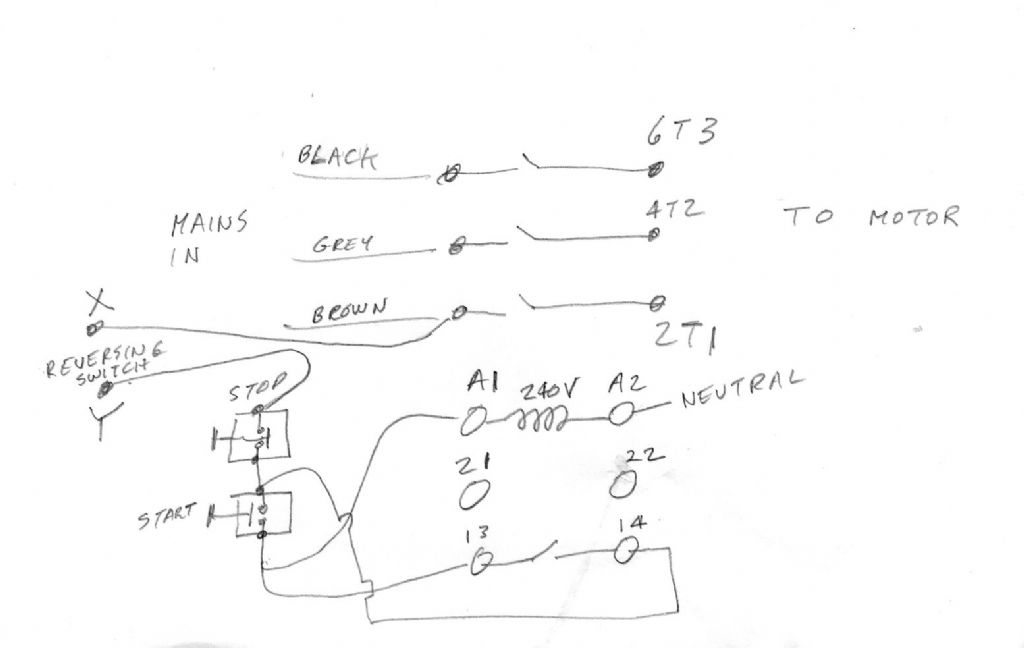 6T3
BLACK
4T2
MAINS
IN
TO MOTOR
GREY
X
BROWN
2T1
REVERSING
SWITCH
STOP
A1
240V
A2
NEUTRAL
Y
21
22
START
13
14